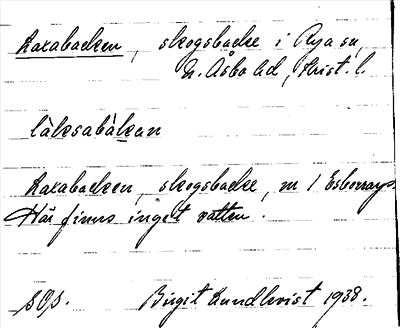 Laxabacken, skogsbacke i Rya sn,
N. Åsbo hd, Krist. l.
làksabàkan
Laxabacken, skogsbacke, m 1
Här finns inget vatten.
SOs. Birgit Lundkvist 1938.